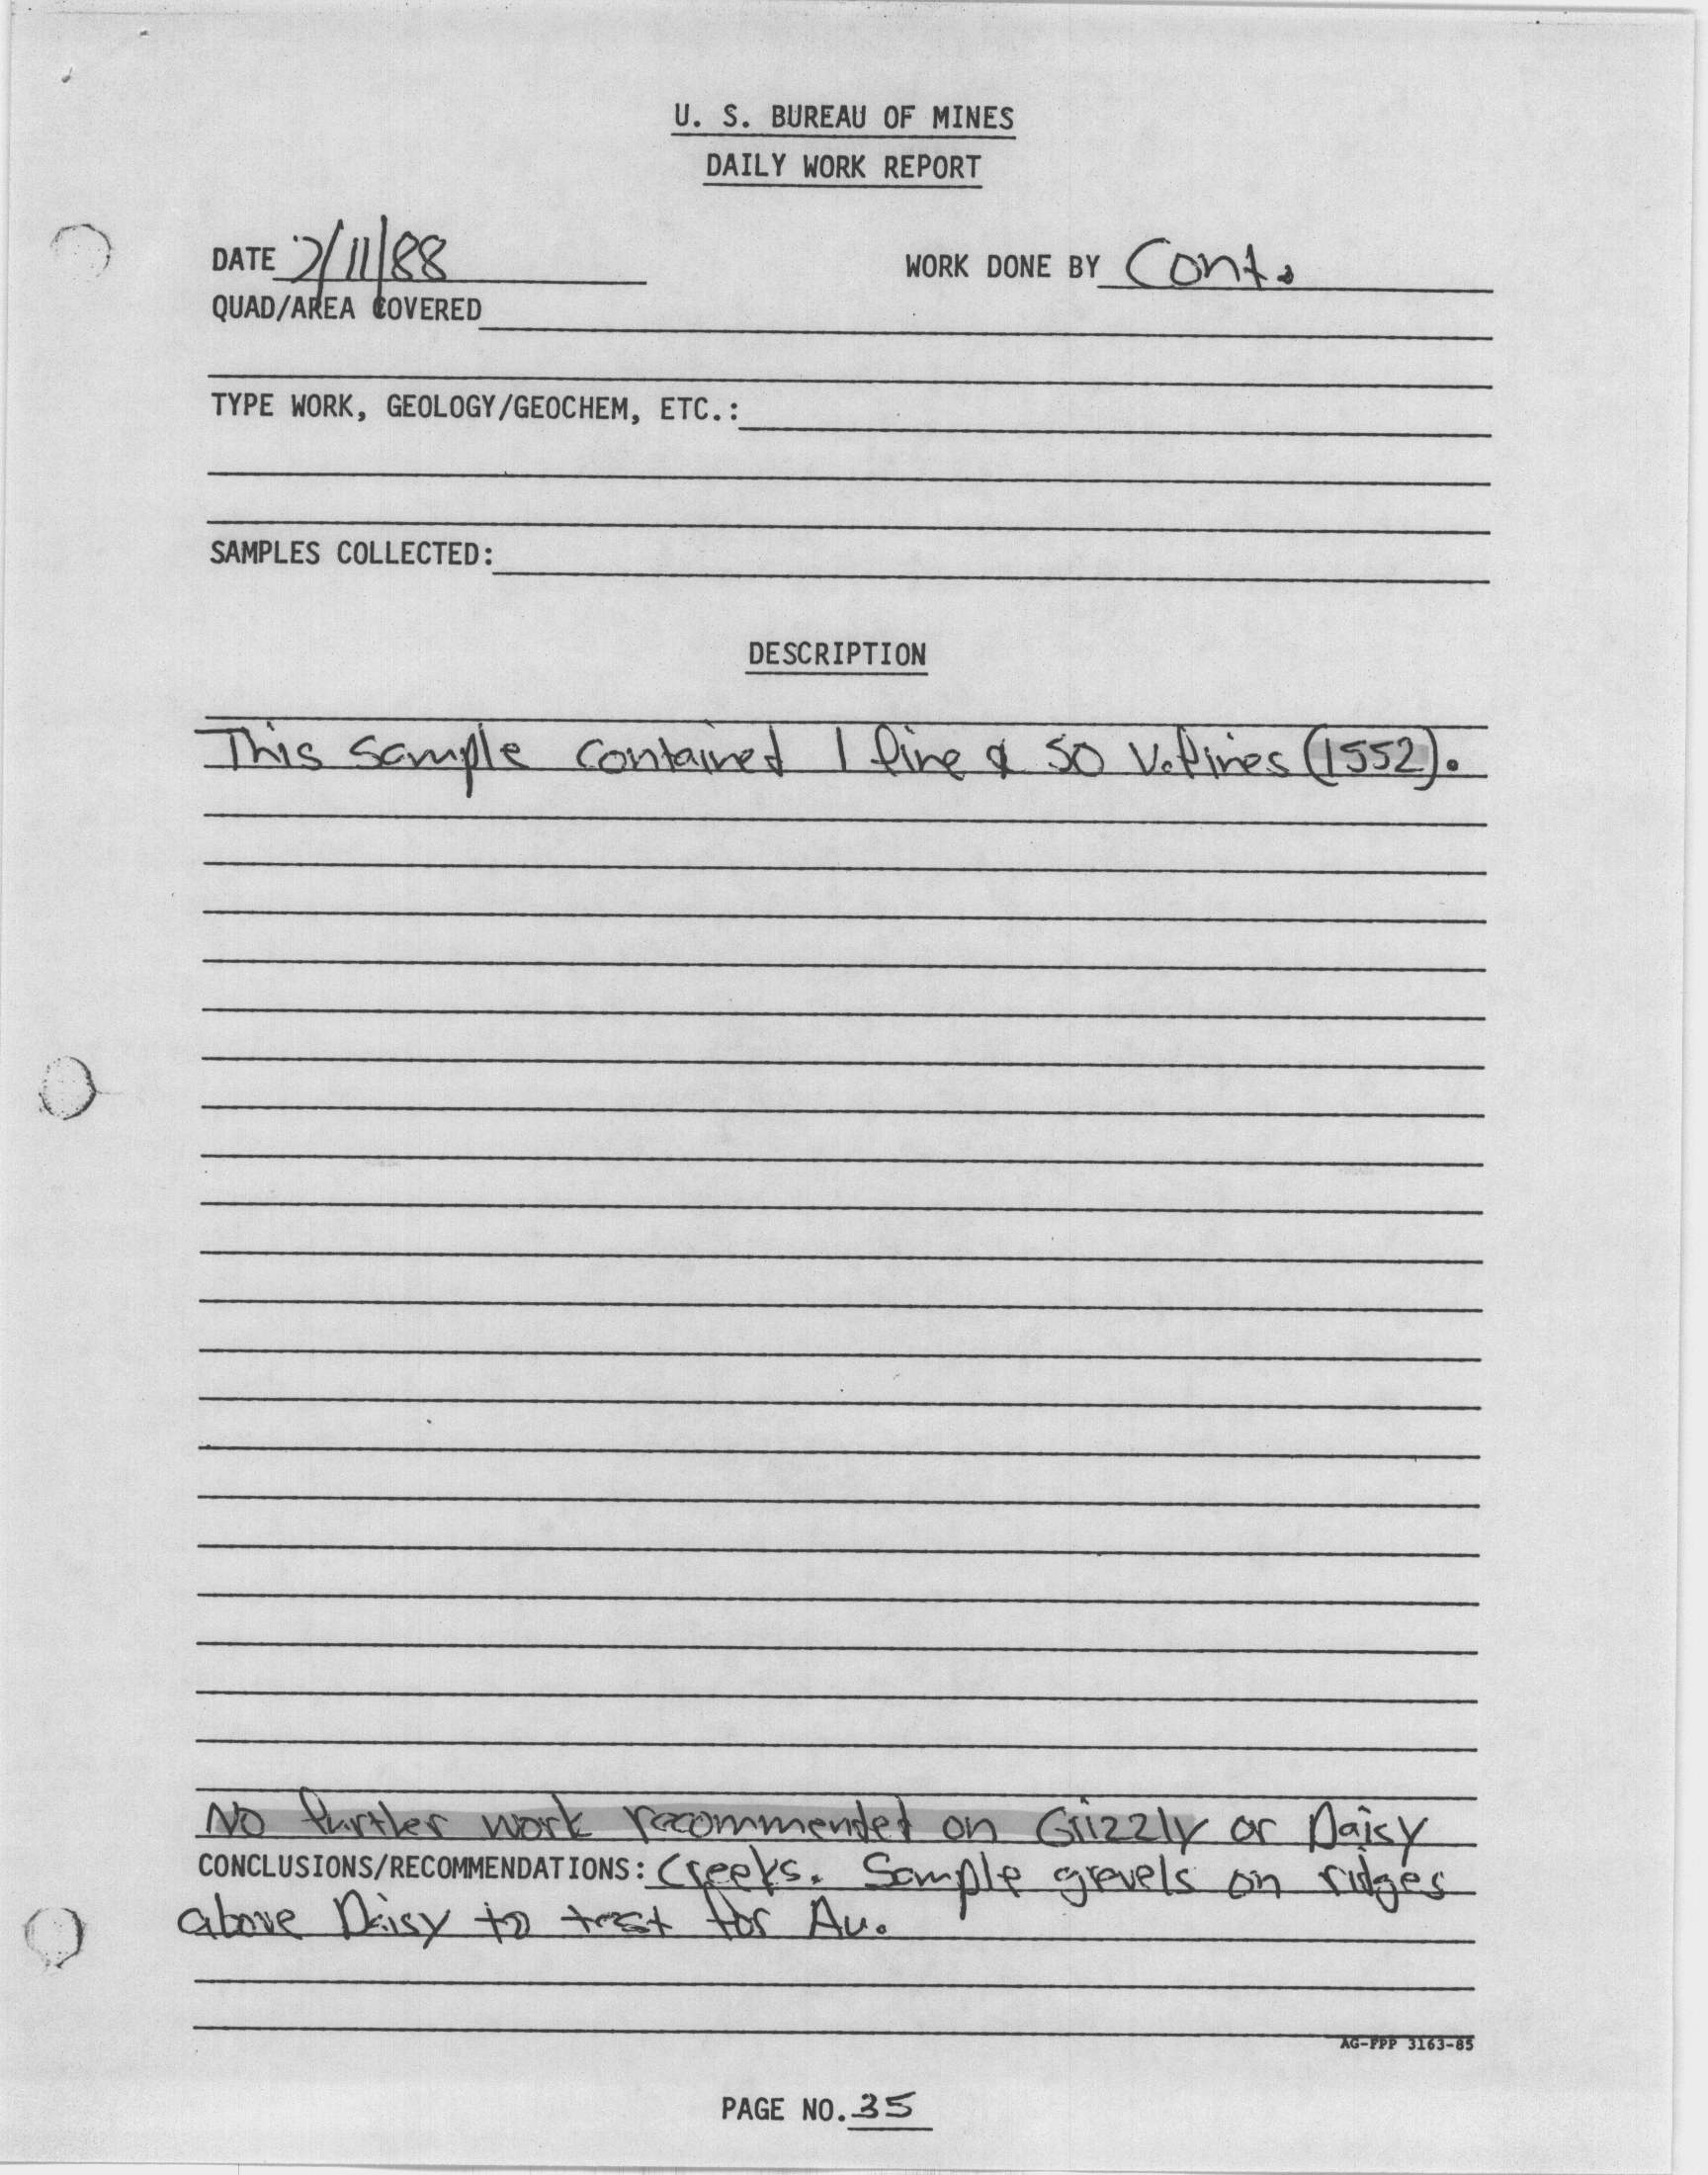 U. S. BUREAU OF MINES
DAILY WORK REPORT
DATE 7/11/88 WORK DONE BY Cont.
QUAD/AREA COVERED
TYPE WORK, GEOLOGY/GEOCHEM, ETC.:
SAMPLES COLLECTED:
DESCRIPTION
This Sample contained 1 fine & 50 V.fines (1552).
No further work recommended on Grizzly or Daisy
CONCLUSIONS/RECOMMENDATIONS: Creeks. Sample gravels on ridges
above Daisy to test for Au.
AG-FPP 3163-85
PAGE NO. 35